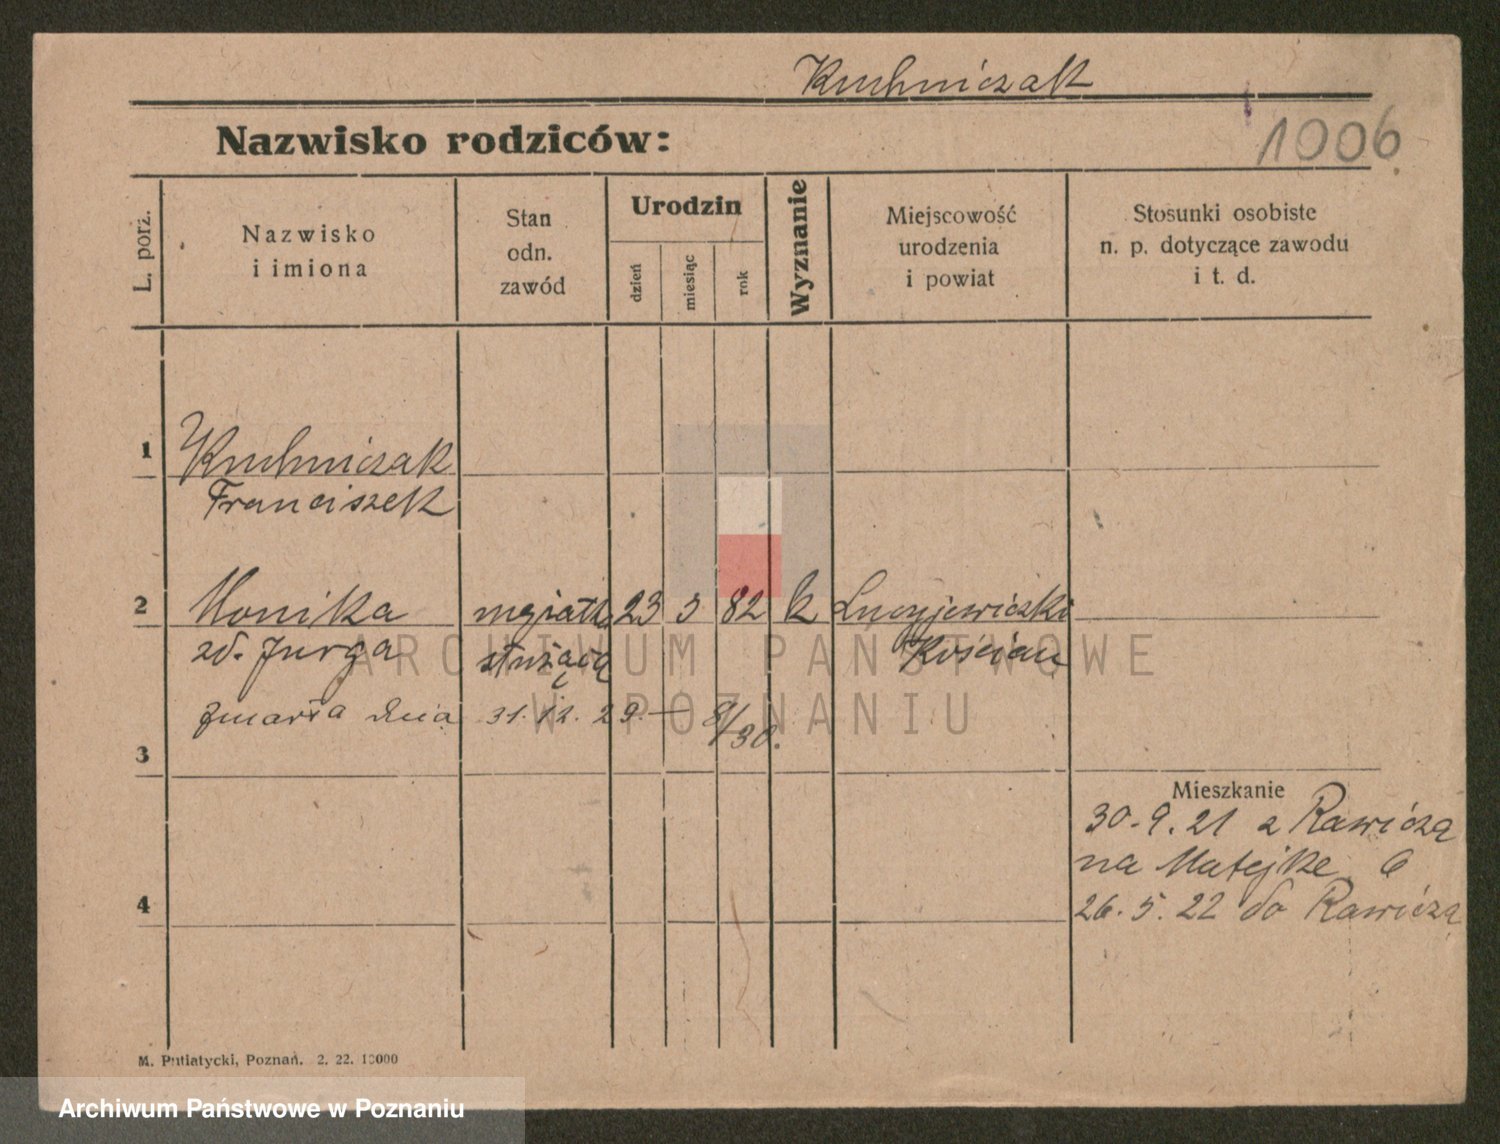 Kuchniczak
Nazwisko rodziców:
1006
L. porz.
Nazwisko
i imiona
Stan
odn.
zawód
Urodzin
dzień
miesiąc
rok
Wyznanie
Miejscowość
urodzenia
i powiat
Stosunki osobiste
n. p. dotyczące zawodu
i t. d.
1
Kuchniczak
Franciszek
2
Monika 23 82 k
zd. Jurga służąca Kościan
zmarła dnia 31.12.29. — 8/30.
3
Mieszkanie
30.9.21 z Rawicza
na Matejke 6
4
26.5.22 do Rawicza
M. Putiatycki, Poznań. 2. 22. 10000
ARCHIWUM PAŃSTWOWE
W POZNANIU
Archiwum Państwowe w Poznaniu